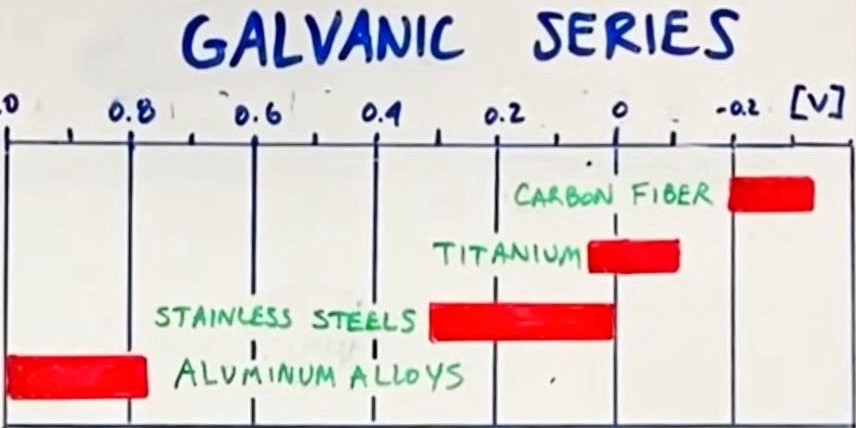 GALVANIC SERIES
.0 0.8 0.6 0.4 0.2 0 -0.2 [V]
CARBON FIBER
TITANIUM
STAINLESS STEELS
ALUMINUM ALLOYS